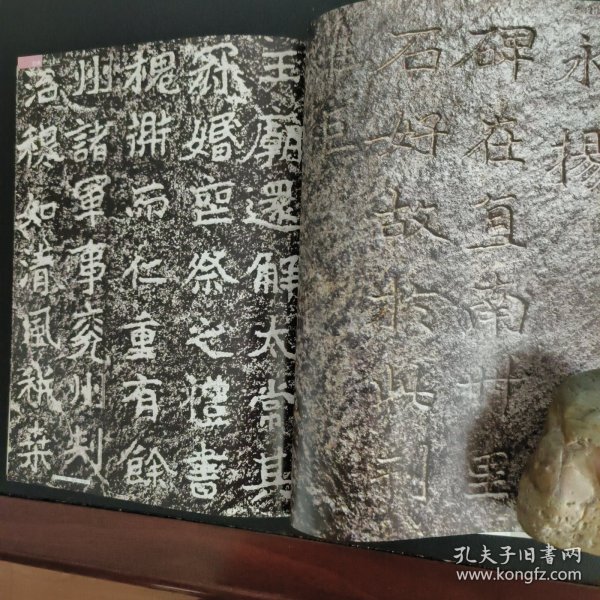 永
楊
碑在直南卌里
石好故於此刊
王廟還解太常其
冠婚喪祭之禮書
愧謝而仁重有餘
州諸軍事兖州刾
治穆如清風耕桒
孔夫子旧书网
www.kongfz.com